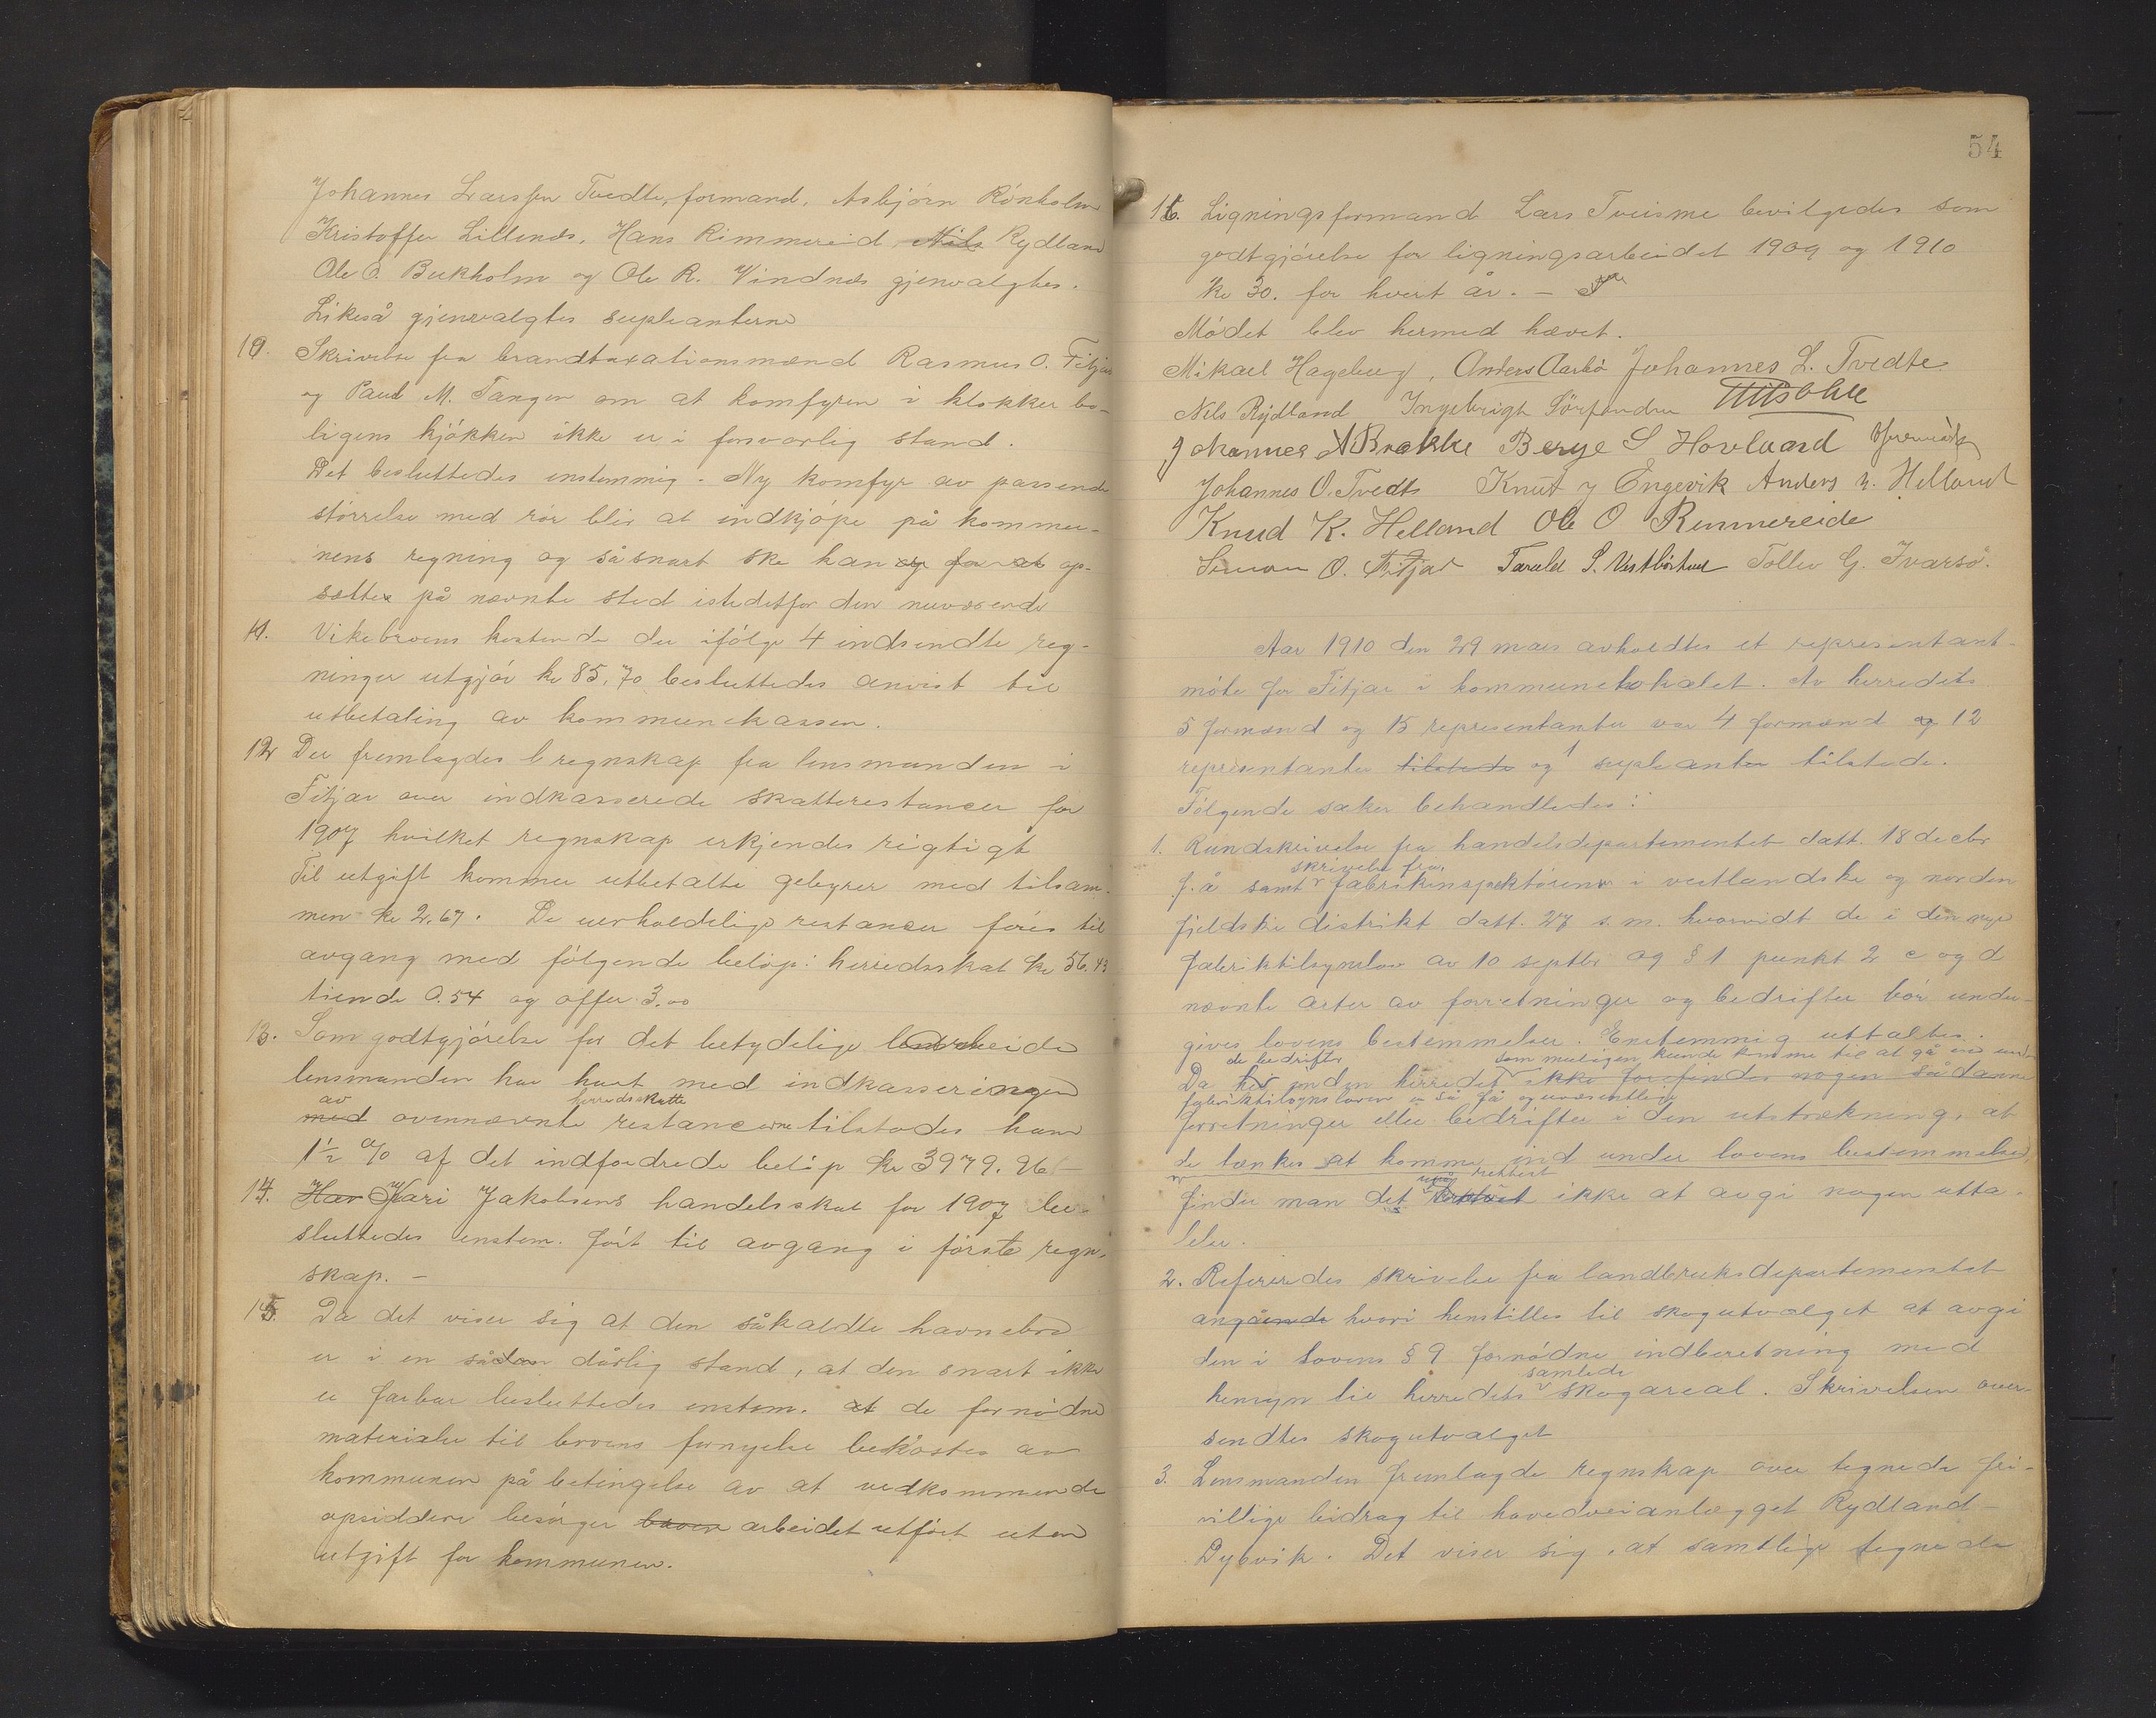 Johannes Larssen Tvedte, formand, Asbjörn Rönholm
Kristoffer Lillenes, Hans Rimmereid, Nils Rydland
Ole O. Bukholm og Ole R. Vindnes gjenvalgtes.
Likeså gjenvalgtes supleanterne
10. Skrivelse fra brandtaxationsmænd Rasmus O. Fitjar
og Paul M. Tangen om at komfyren i klokkerbo-
ligens kjökken ikke er i forsvarlig stand.
Det besluttedes enstemmig. Ny komfyr av passende
störrelse med rör blir at indkjöpe på kommu-
nens regning og så snart ske kan og for at op-
sættes på nævnte sted istedetfor den nuværende
11. Vikebroens kostende der ifölge 4 indsendte reg-
ninger utgjör kr 85,70 besluttedes anvist til
utbetaling av kommunekassen.
12 Der fremlagdes 1 regnskap fra lensmanden i
Fitjar over indkasserede skatterestancer for
1907 hvilket regnskap erkjendes rigtigt
Til utgift kommer utbetalte gebyrer med tilsam-
men kr 2.67. De uerholdelige restancer föres til
avgang med fölgende belöp: herredsskat kr 56.43
tiende 0.54 og offer 3.00
13. Som godtgjörelse for det betydelige arbeide
lensmanden har havt med indkasseringen
av herredsskatte
med ovennævnte restancerne tilstodes ham
1½ % af det indfordrede belöp kr 3979.26 -
14. Kari Jakobsens handelsskat for 1907 be-
sluttedes enstem. fört til avgang i förste regn-
skap. -
15. Da det viser sig at den såkaldte havnebro
er i en sådan dårlig stand, at den snart ikke
er farbar besluttedes enstem. at de fornödne
materialer til broens fornyelse bekostes av
kommunen på betingelse av at vedkommende
opsiddere besörger broen arbeidet utfört uten
utgift for kommunen.
54
16. Ligningsformand Lars Tveisme bevilgedes som
godtgjörelse for ligningsarbeidet 1909 og 1910
kr 30. for hvert år. -
Mödet blev hermed hævet.
Mikael Hageberg, Anders Aarbö Johannes L. Tvedte
Nils Rydland Ingebrigt Sörfonden
Johannes A Brekke Berge S Hovland
Johannes O. Tvedte Knut J Engevik Anders N. Helland
Knud K. Helland Ole O Rimmereide
Simon O. Fitjar Tarald S. Vestböstad Tollev G. Ivarsö.
Aar 1910 den 29 mars avholdtes et representant-
möte for Fitjar i kommunelokalet. Av herredets
5 formænd og 15 representanter var 4 formænd og 12
representanter tilstede og 1 supleanter tilstede.
Fölgende saker behandledes:
1. Rundskrivelse fra handelsdepartementet datt. 18 decbr
skrivelse fra
f. å samt fabrikinspektören i vestlandske og norden
fjeldske distrikt datt. 27 s. m. hvorvidt de i den nye
fabriktilsynslov av 10 septbr 09 § 1 punkt 2 c og d
nævnte arter av forretninger og bedrifter bör under-
gives lovens bestemmelser. Enstemmig uttaltes.
de bedrifter som muligens kunde komme til at gå ind under
Da her inden herredet ikke forefindes nogen sådanne
fabriktilsynsloven er så få og uvæsentlige
forretninger eller bedrifter i den utstrækning, at
de tænkes at komme ind under lovens bestemmelser,
rettest
finder man det ikke at avgi nogen utta-
lelse.
2. Refereredes skrivelse fra landbruksdepartementet
angående hvori henstilles til skogutvalget at avgi
den i lovens § 9 fornödne indberetning med
samlede
hensyn til herredets skogareal. Skrivelsen over-
sendtes skogutvalget
3. Lensmanden fremlagde regnskap over tegnede fri-
villige bidrag til hovedveianlægget Rydland-
Dybvik. Det viser sig, at samtlige tegnede